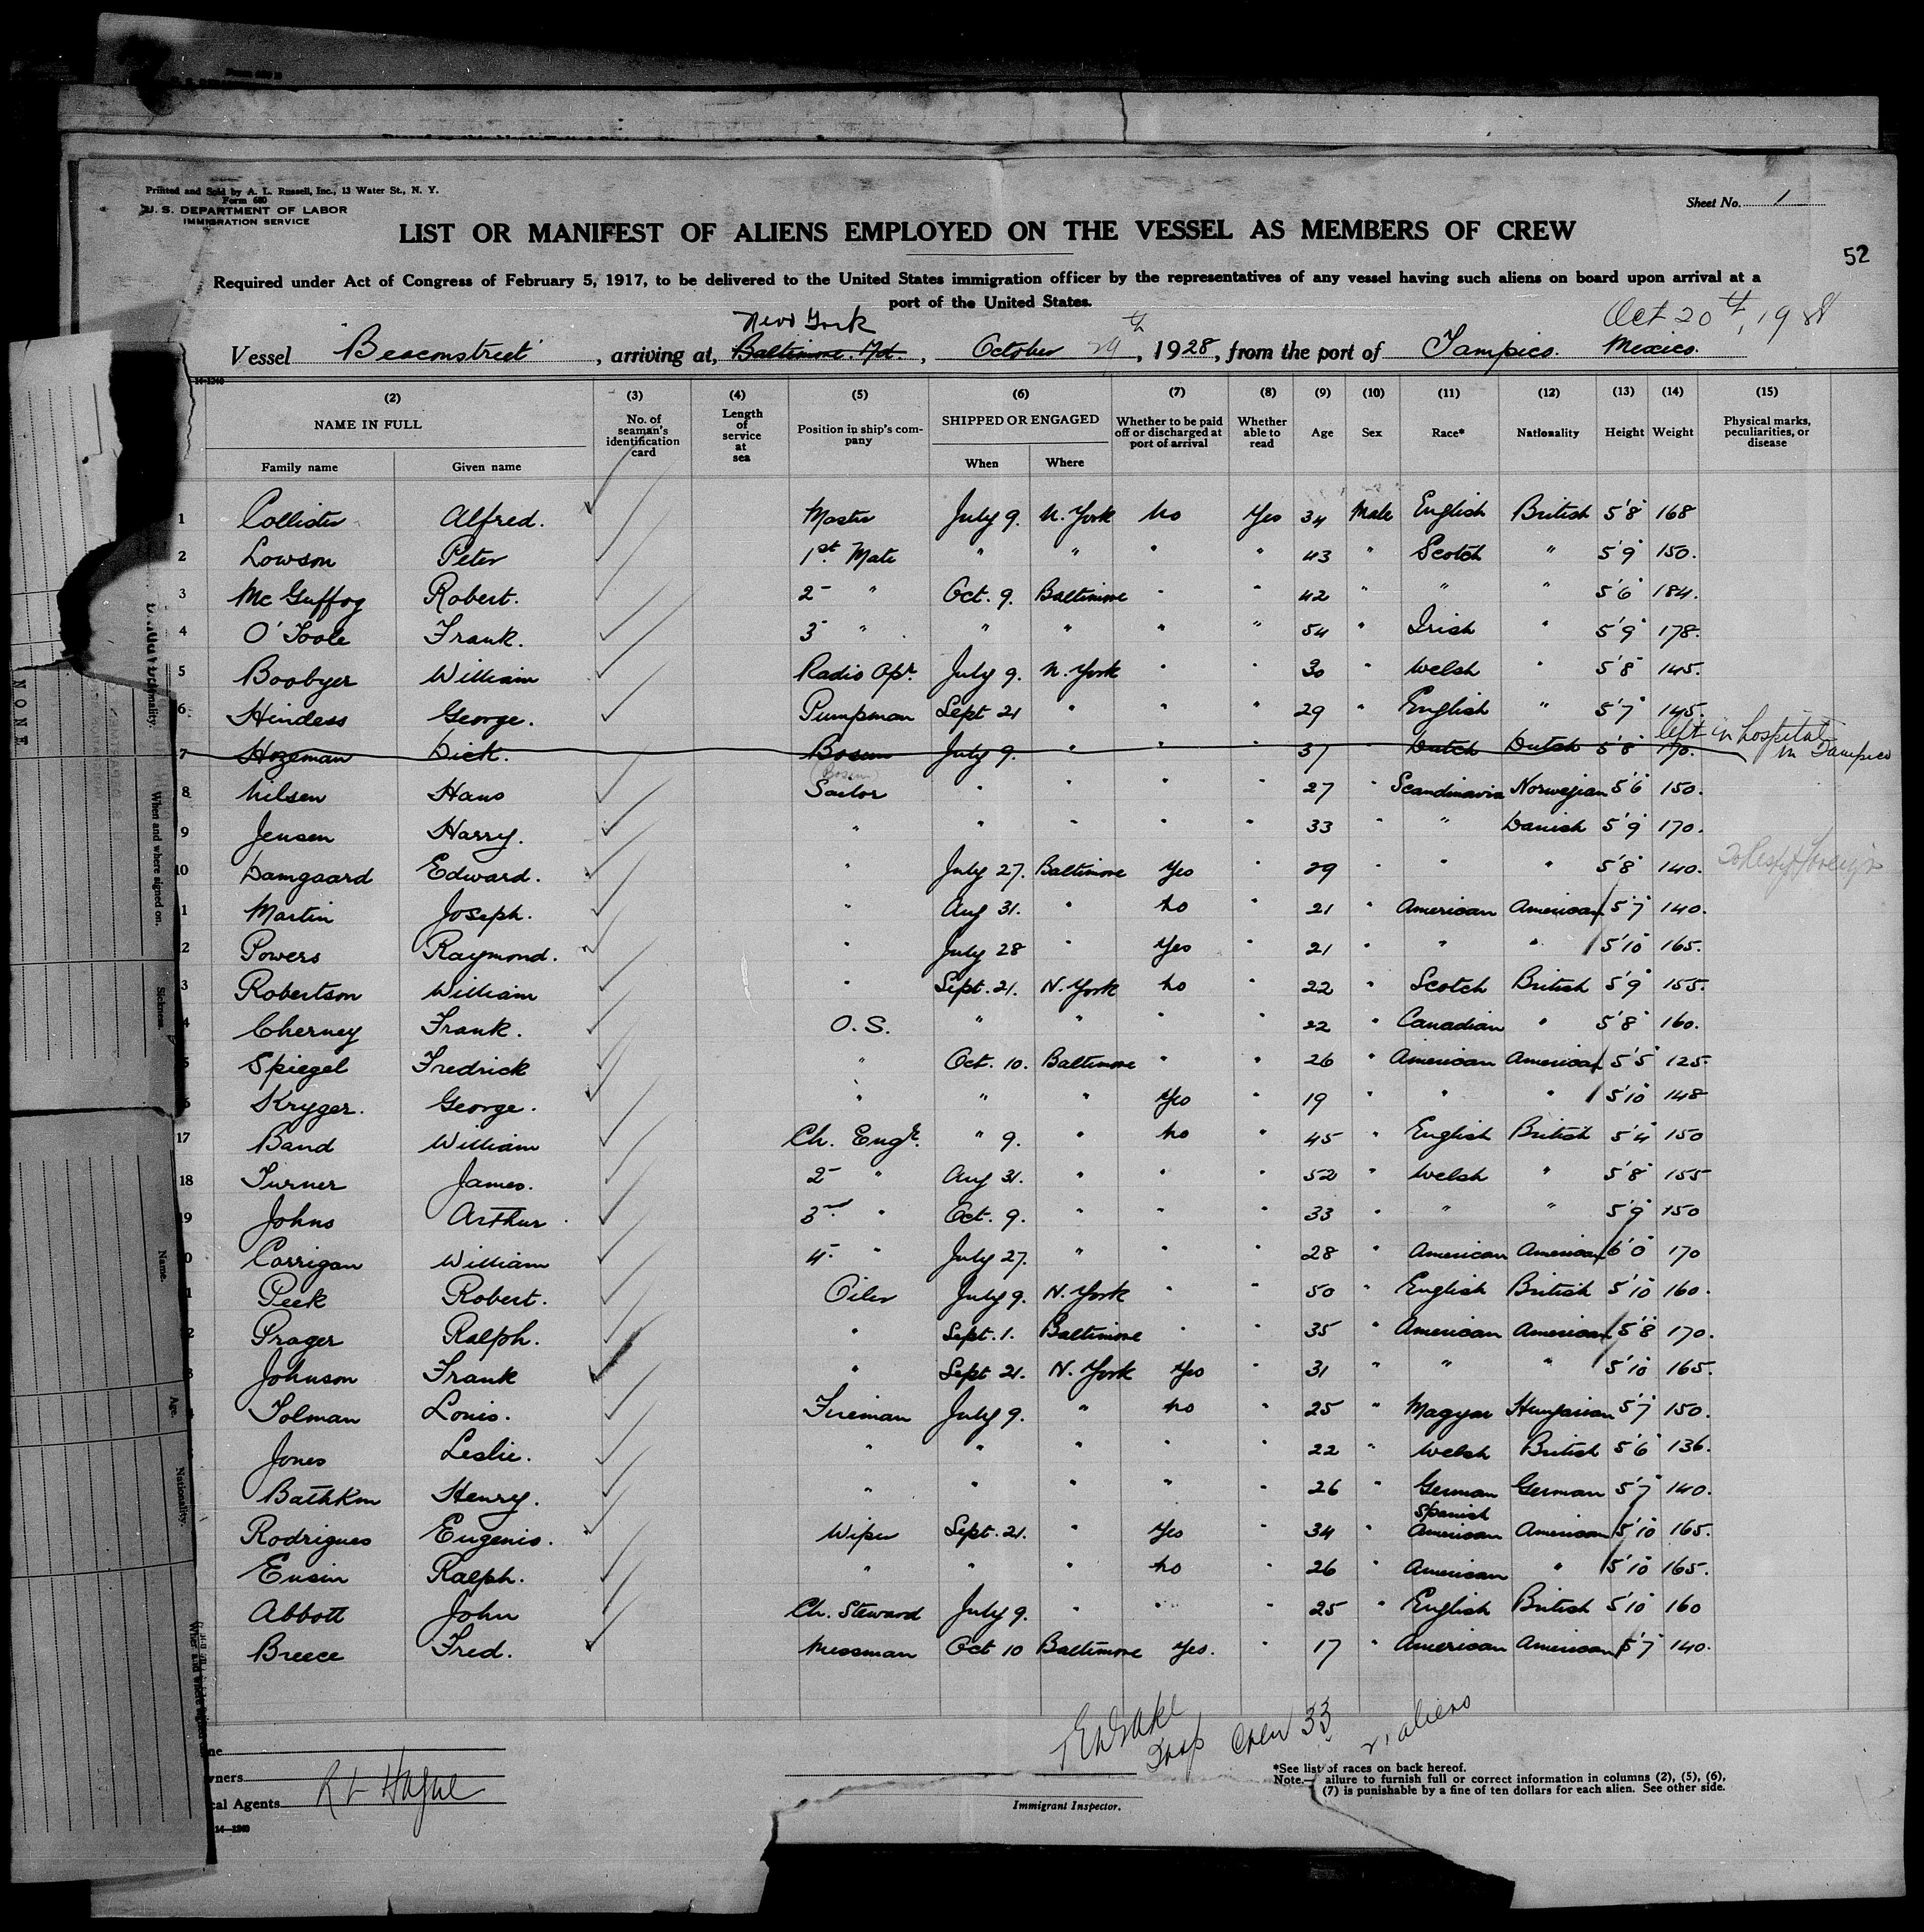 Printed and Sold by A. L. Russell, Inc., 13 Water St., N. Y.
Form 680
U. S. DEPARTMENT OF LABOR
IMMIGRATION SERVICE
Sheet No. 1
LIST OR MANIFEST OF ALIENS EMPLOYED ON THE VESSEL AS MEMBERS OF CREW
52
Required under Act of Congress of February 5, 1917, to be delivered to the United States immigration officer by the representatives of any vessel having such aliens on board upon arrival at a
port of the United States.
New York
Oct 20th, 19
Vessel "Beaconstreet", arriving at, Baltimore. Md., October 29th, 1928, from the port of Tampico. Mexico.
14-1240
(2) (3) (4) (5) (6) (7) (8) (9) (10) (11) (12) (13) (14) (15)
NAME IN FULL No. of seaman's identification card Length of service at sea Position in ship's company SHIPPED OR ENGAGED Whether to be paid off or discharged at port of arrival Whether able to read Age Sex Race* Nationality Height Weight Physical marks, peculiarities, or disease
Family name Given name When Where
1 Collister Alfred. Master July 9. N. York No Yes 34 Male English British 5'8" 168
2 Lowson Peter 1st Mate " " " " 43 " Scotch " 5'9" 150.
3 Mc Guffog Robert. 2 " Oct. 9. Baltimore " " 42 " " " 5'6" 184.
4 O'Toole Frank. 3 " " " " " 54 " Irish " 5'9" 178.
5 Boobyer William Radio Opr. July 9. N. York " " 30 " Welsh " 5'8" 145.
6 Hindess George. Pumpman Sept 21 " " " 29 " English " 5'7" 145.
left in hospital in Tampico
7 Hozeman Dick. Bosun July 9. " " " 37 " Dutch Dutch 5'8" 170.
(Bosun)
8 Nilsen Hans Sailor " " " " 27 " Scandinavia Norwegian 5'6" 150.
9 Jensen Harry. " " " " " 33 " " Danish 5'9" 170.
10 Damgaard Edward. " July 27. Baltimore Yes " 29 " " " 5'8" 140.
1 Martin Joseph. " Aug 31. " No " 21 " American American 5'7" 140.
2 Powers Raymond. " July 28 " Yes " 21 " " " 5'10" 165.
3 Robertson William " Sept. 21. N. York No " 22 " Scotch British 5'9" 155.
4 Cherney Frank. O. S. " " " " 22 " Canadian " 5'8" 160.
5 Spiegel Fredrick " Oct. 10. Baltimore " " 26 " American American 5'5" 125.
6 Kryger. George. " " " Yes " 19 " " " 5'10" 148
17 Band William Ch. Engr. " 9. " No " 45 " English British 5'4" 150
18 Turner James. 2 " Aug 31. " " " 52 " Welsh " 5'8" 155
19 Johns Arthur 3rd " Oct. 9. " " " 33 " " " 5'9" 150
0 Corrigan William 4 " July 27. " " " 28 " American American 6'0" 170
1 Peek Robert. Oiler July 9. N. York " " 50 " English British 5'10" 160.
2 Prager Ralph. " Sept. 1. Baltimore " " 35 " American American 5'8 170.
3 Johnson Frank " Sept 21. N. York Yes " 31 " " " 5'10" 165.
Tolman Louis. Fireman July 9. " No " 25 " Magyar Hungarian 5'7" 150.
Jones Leslie. " " " " " 22 " Welsh British 5'6" 136.
Bathkm Henry. " " " " " 26 " German German 5'7" 140.
Spanish
Rodrigues Eugenio. Wiper Sept. 21. " Yes " 34 " American American 5'10" 165.
Ensin Ralph. " " " No " 26 " American " 5'10" 165.
Abbott John Ch. Steward July 9. " " " 25 " English British 5'10" 160
Breece Fred. Messman Oct 10 Baltimore Yes. " 17 " American American 5'7" 140.
Crew 33
21 aliens
R L Hague
wners
cal Agents
14—1240
Immigrant Inspector.
*See list of races on back hereof.
Note.— ailure to furnish full or correct information in columns (2), (5), (6),
(7) is punishable by a fine of ten dollars for each alien. See other side.
NONE
Nationality.
When and where signed on.
Sickness
Name.
Age.
Nationality.